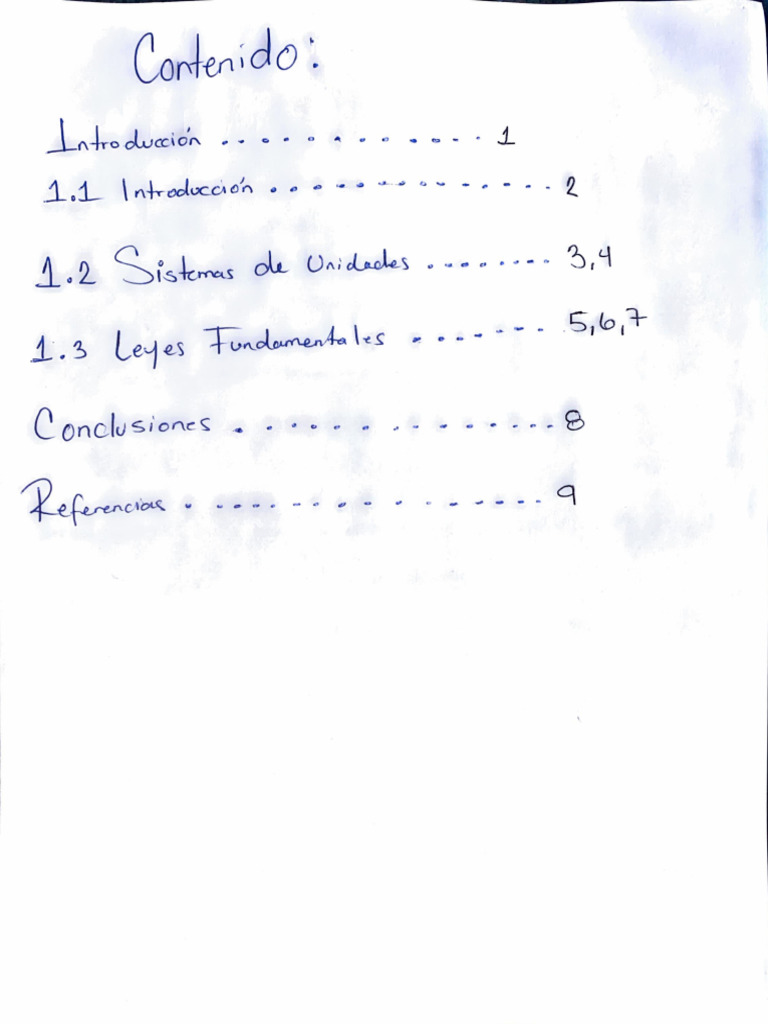 Contenido:
Introducción ............ 1
1.1 Introducción ............... 2
1.2 Sistemas de Unidades ........ 3,4
1.3 Leyes Fundamentales ....... 5,6,7
Conclusiones .............. 8
Referencias ................ 9